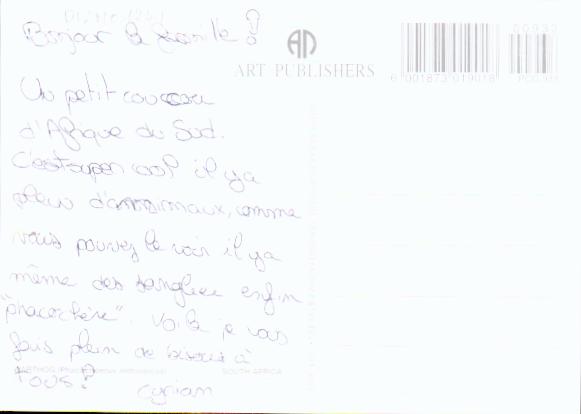 Bonjour la famille !
AP
ART PUBLISHERS
6 001873 019018
00990
Un petit coucou
d'Afrique du Sud.
C'est super cool il y a
plein d'annimaux, comme
vous pouvez le voir il y a
même des sanglier enfin
"phacochère". Voila je vous
fais plein de bisous à
tous !
SOUTH AFRICA
Cyprian